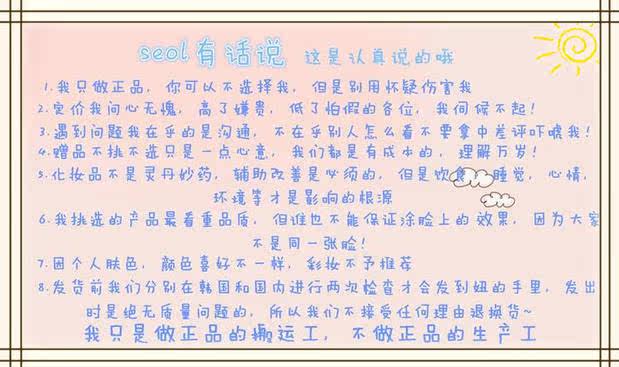 seol有话说 这是认真说的哦
1.我只做正品，你可以不选择我，但是别用怀疑伤害我
2.定价我问心无愧，高了嫌贵，低了怕假的各位，我伺候不起！
3.遇到问题我在乎的是沟通，不在乎别人怎么看不要拿中差评吓唬我！
4.赠品不挑不选只是一点心意，我们都是有成本的，理解万岁！
5.化妆品不是灵丹妙药，辅助改善是必须的，但是饮食，睡觉，心情，
环境等才是影响的根源
6.我挑选的产品最看重品质，但谁也不能保证涂脸上的效果，因为大家
不是同一张脸！
7.因个人肤色，颜色喜好不一样，彩妆不予推荐
8.发货前我们分别在韩国和国内进行两次检查才会发到妞的手里，发出
时是绝无质量问题的，所以我们不接受任何理由退换货~
我只是做正品的搬运工，不做正品的生产工